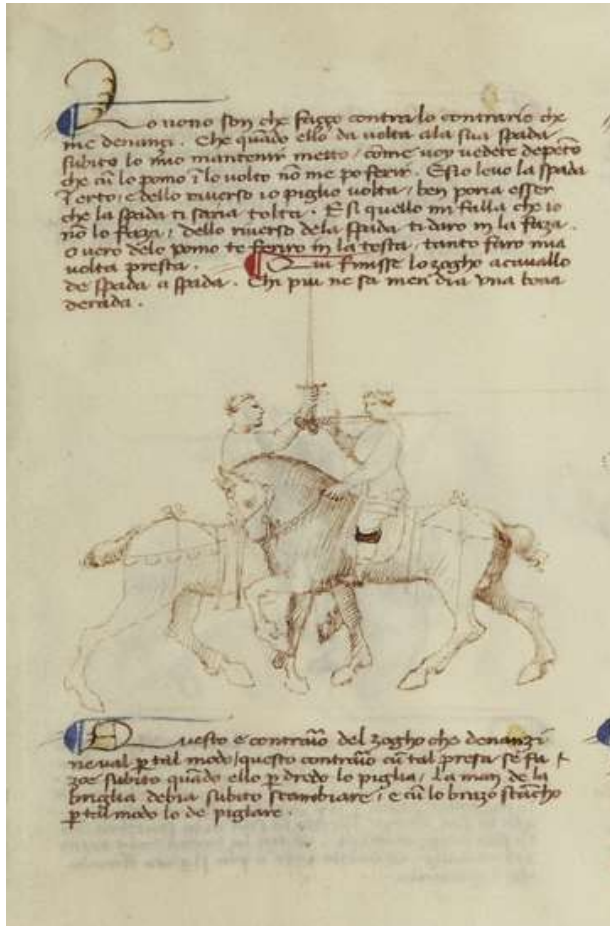 Io uono son che faço contra lo contrario che
me denançi. Che quãdo ello da volta ala sua spada
subito lo mio mantenir metto / come voy vedete depento
che cũ lo pomo ĩ lo volto nõ me po ferir. E s'io levo la spada
ĩ erto / e dello riverso io piglio volta / ben poria esser
che la spada ti saria tolta. E si quello mi falla che io
nõ lo faça / dello riverso dela spada ti daro in la faza.
o vero delo pomo te feriro in la testa / tanto faro mia
volta presta. Qui finisse lo zogho a cavallo
de spada a spada. Chi piu ne sa men dia una bona
derada.
Questo e contraũo del zogho che denanzi
ne val ꝑ tal modo / questo contraũo cũ tal presa se fa
zoe subito quãdo ello ꝑ dredo lo piglia / La man de la
briglia debia subito scambiare / e cũ lo brazo stãcho
ꝑ tal modo lo de pigliare.